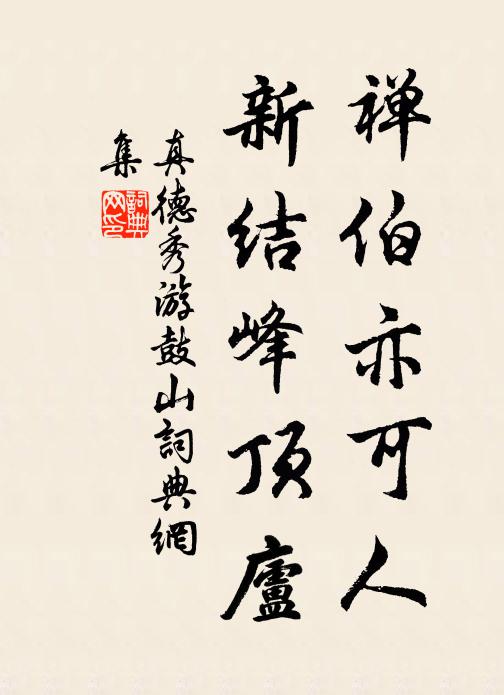 禅伯亦可人
新结峰顶廬
真德秀游鼓山詞典網
集
詞典网印